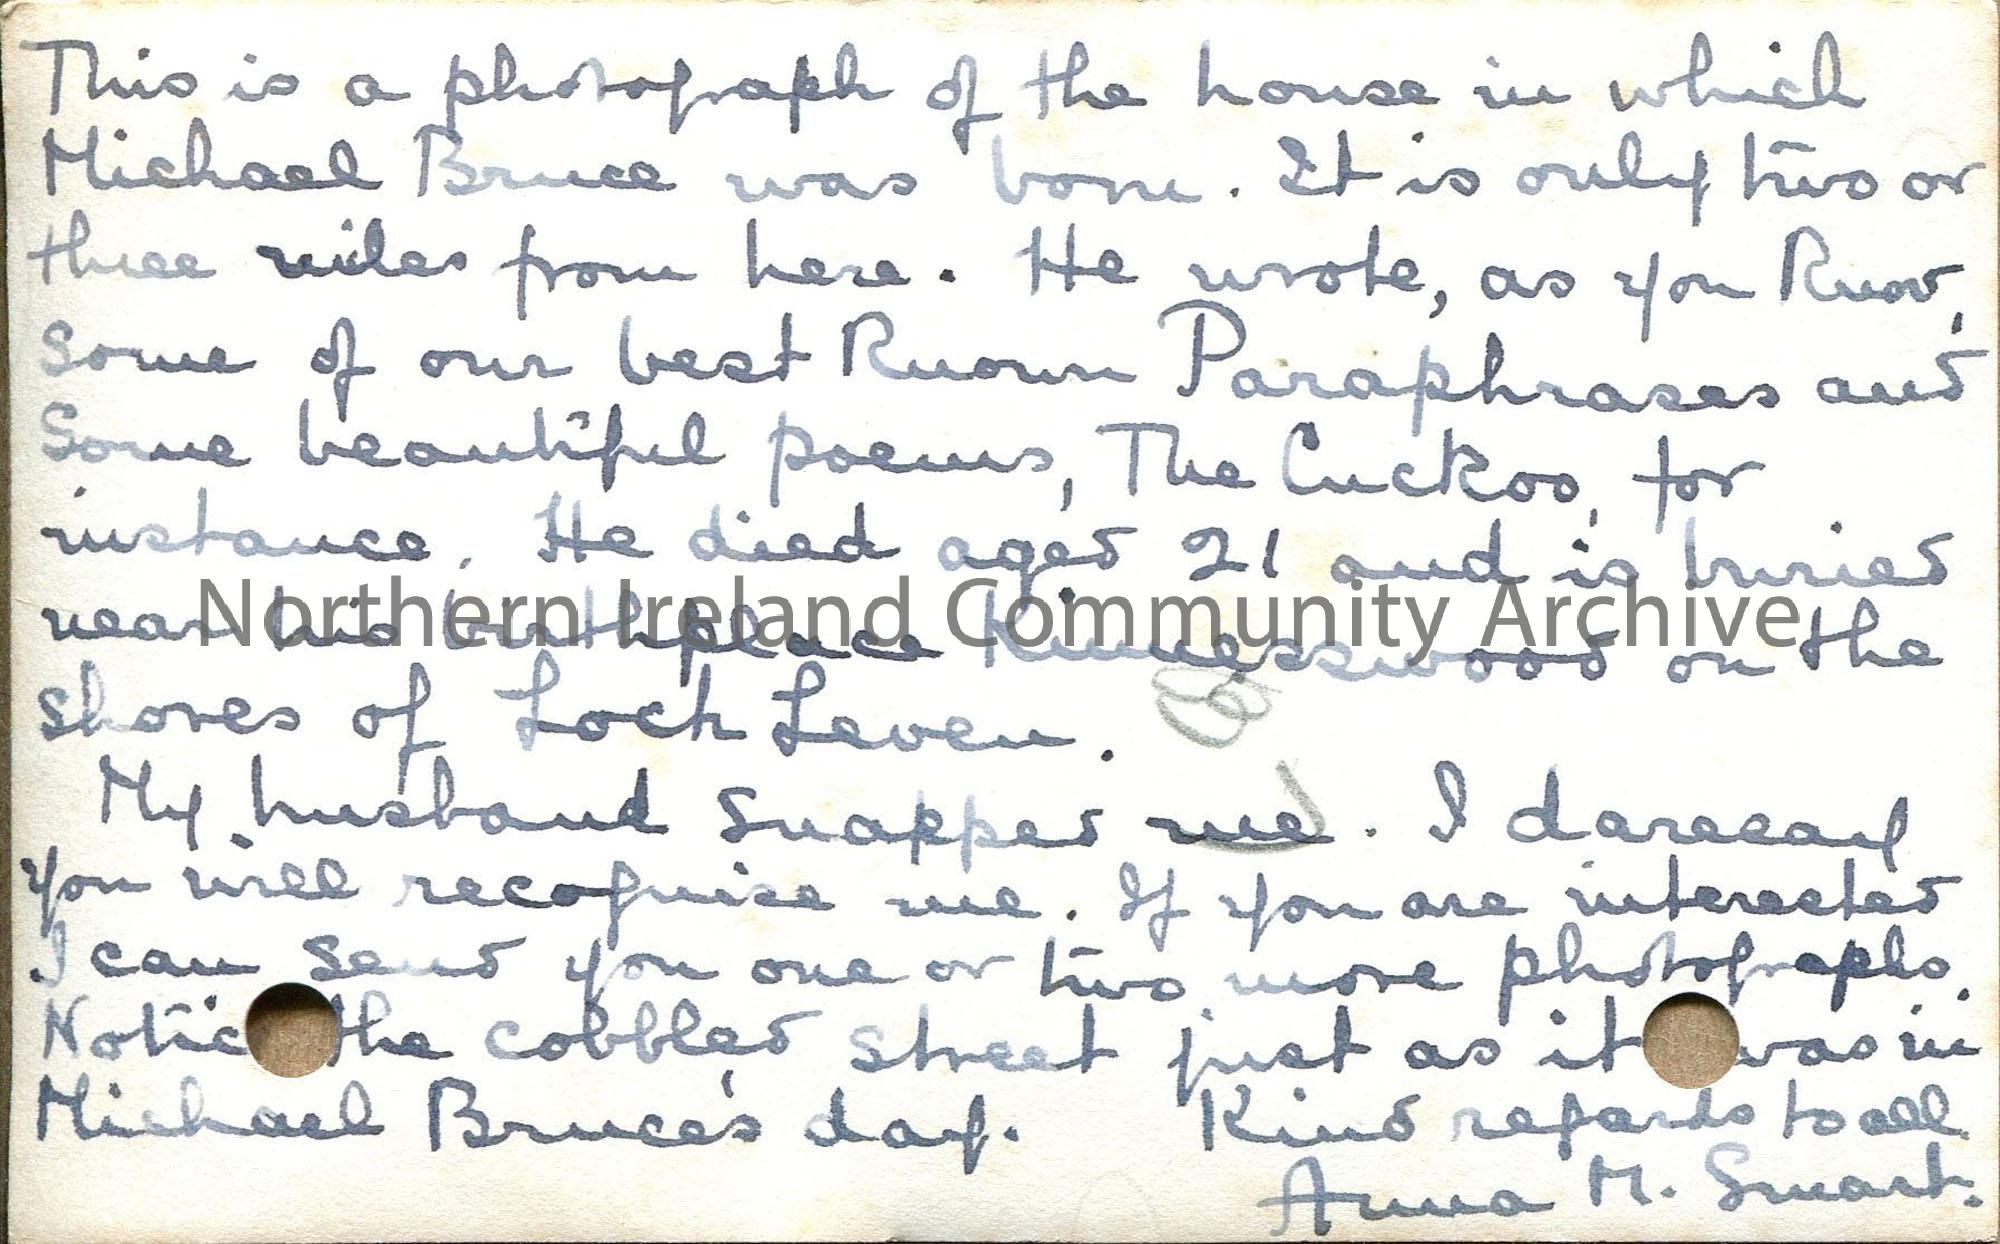 This is a photograph of the house in which
Michael Bruce was born. It is only two or
three miles from here. He wrote, as you know,
some of our best known Paraphrases and
some beautiful poems, The Cuckoo, for
instance. He died aged 21 and is buried
near his birthplace Kinnesswood on the
Northern Ireland Community Archive
shores of Loch Leven.
My husband snapped me. I daresay
you will recognise me. If you are interested
I can send you one or two more photographs.
Notic the cobbled street just as it was in
Michael Bruce's day. Kind regards to all.
Anna M. Smart.